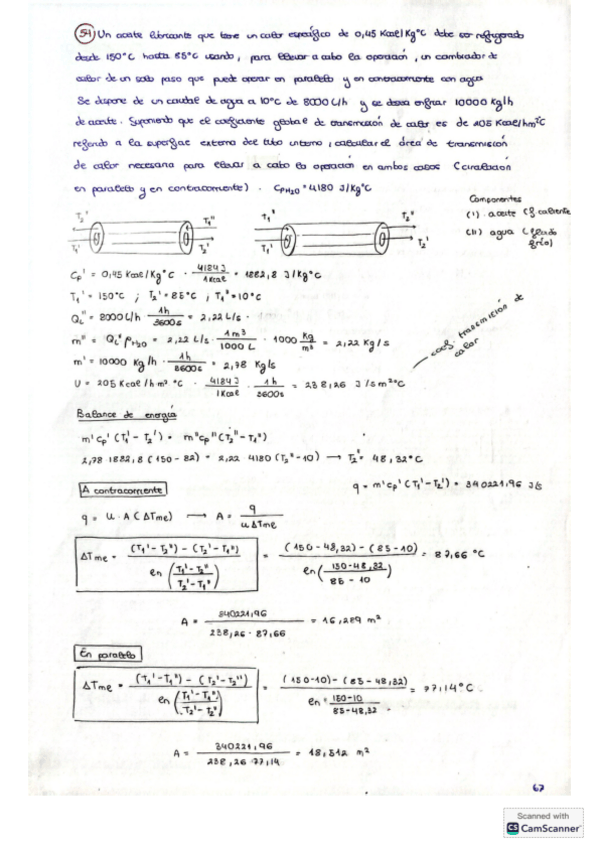 54 Un aceite lubricante que tiene un calor específico de 0,45 Kcal/Kg°C debe ser refrigerado
desde 150°C hasta 85°C usando, para llevar a cabo la operación, un cambiador de
calor de un solo paso que puede operar en paralelo y en contracorriente con agua
Se dispone de un caudal de agua a 10°C de 8000 L/h y se desea enfriar 10000 Kg/h
de aceite. Suponiendo que el coeficiente global de transmisión de calor es de 205 Kcal/hm²°C
referido a la superficie externa del tubo interno, calcular el área de transmisión
de calor necesaria para llevar a cabo la operación en ambos casos (circulación
en paralelo y en contracorriente). CpH2O = 4180 J/Kg°C
Componentes
(I) aceite (f caliente
(II) agua (fluido frío)
T2'' T1' T1'' T2'
T1' T1'' T2'' T2'
Cp' = 0,45 Kcal/Kg°C · 4184 J / 1 Kcal = 1882,8 J/Kg°C
T1' = 150°C ; T2' = 85°C ; T1'' = 10°C
QL'' = 8000 L/h · 1h / 3600s = 2,22 L/s
m'' = QL'' ρH2O = 2,22 L/s · 1 m³ / 1000 L · 1000 Kg/m³ = 2,22 Kg/s
m' = 10000 Kg/h · 1h / 3600s = 2,78 Kg/s
coef. transmisión de calor
U = 205 Kcal/h m² °C · 4184 J / 1 Kcal · 1h / 3600s = 238,26 J/s m² °C
Balance de energía
m' Cp' (T1' - T2') = m'' Cp'' (T2'' - T1'')
2,78 · 1882,8 (150 - 82) = 2,22 · 4180 (T2'' - 10) → T2'' = 48,32°C
q = m' Cp' (T1' - T2') = 340221,96 J/s
A contracorriente
q = U · A (ΔTme) → A = q / U ΔTme
ΔTme = (T1' - T2'') - (T2' - T1'') / ln (T1' - T2'' / T2' - T1'') = (150 - 48,32) - (85 - 10) / ln (150 - 48,32 / 85 - 10) = 87,66 °C
A = 340221,96 / 238,26 · 87,66 = 16,289 m²
En paralelo
ΔTme = (T1' - T1'') - (T2' - T2'') / ln (T1' - T1'' / T2' - T2'') = (150 - 10) - (85 - 48,32) / ln 150 - 10 / 85 - 48,32 = 77,14°C
A = 340221,96 / 238,26 · 77,14 = 18,512 m²
67
Scanned with
CS CamScanner